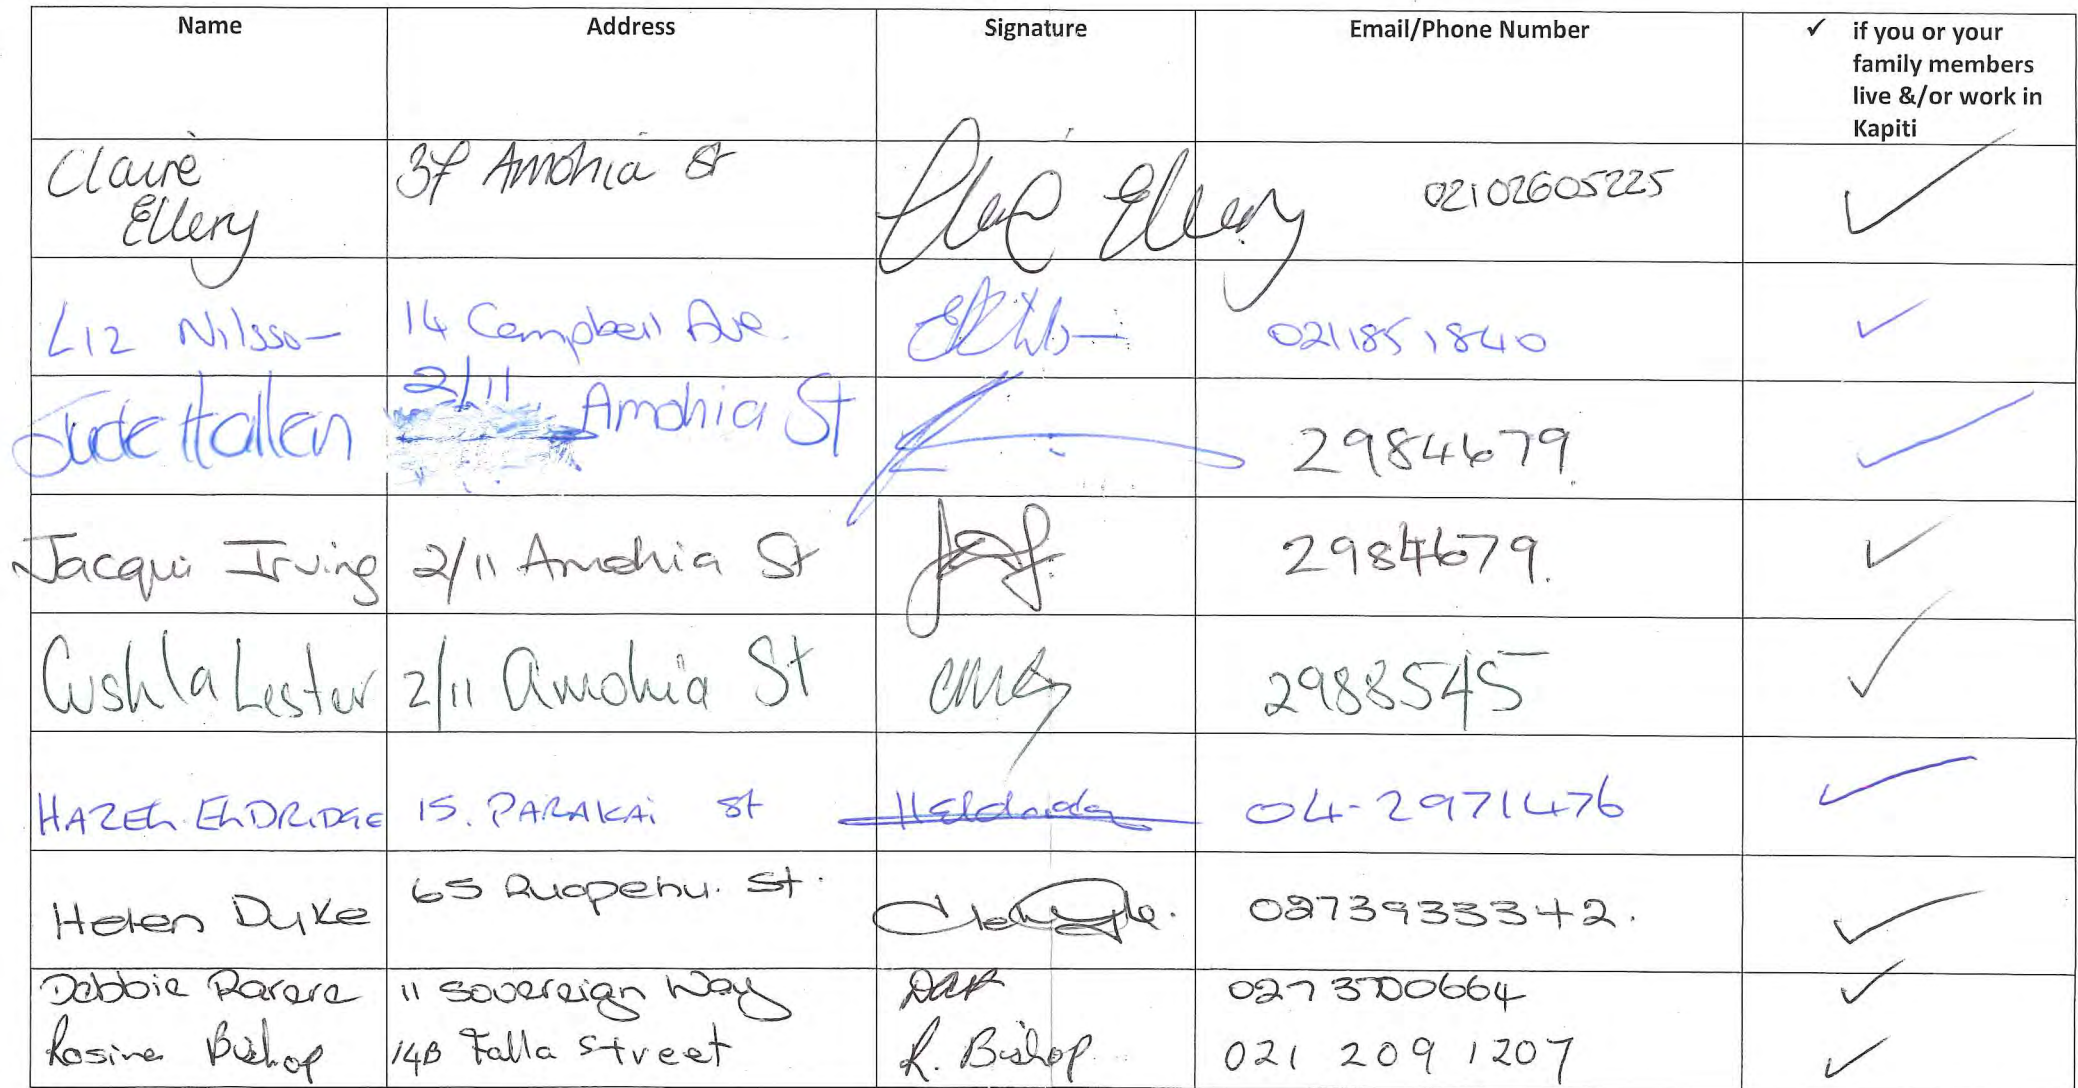 Name Address Signature Email/Phone Number ✓ if you or your
family members
live &/or work in
Kapiti
Claire
Ellery
37 Amohia St
Ellery
02102605225
✓
Liz Nilsson 14 Campbell Ave. 0211851840 ✓
Jude Hallen 2/11 Amohia St 2984679. ✓
Jacqui Irving 2/11 Amohia St 2984679. ✓
Cushla Lester 2/11 Amohia St 2988545 ✓
HAZEL ELDRIDGE 15. PARAKAi St HEldridge 04-2971476 ✓
Helen Dyke 65 Ruapehu. St. ✓
Debbie Rarere 11 Sovereign Way DAR ✓
Bishop 14B Falla Street R. Bishop 021 209 1207 ✓